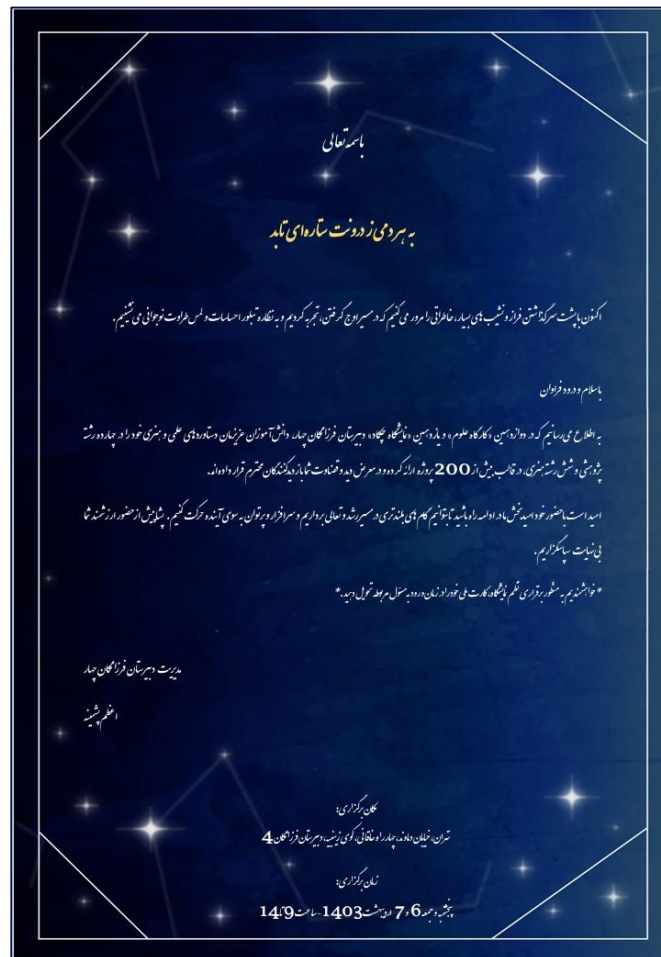 باسمه تعالی
به هر دمی ز درونت ستاره‌ای تابد
اکنون با پشت سر گذاشتن فراز و نشیب های بسیار، خاطراتی را مرور می کنیم که در مسیر اوج گرفتن، تجربه کردیم و به نظاره تبلور احساسات و لمس طراوت نوجوانی می نشینیم.
با سلام و درود فراوان
به اطلاع می‌رسانیم که در دوازدهمین «کارگاه علوم» و یازدهمین «نمایشگاه چکاد» دبیرستان فرزانگان چهار، دانش‌آموزان عزیزمان دستاوردهای علمی و هنری خود را در چهارده رشته
پژوهشی و شش رشته هنری، در قالب بیش از 200 پروژه ارائه کرده و در معرض دید و قضاوت شما بازدیدکنندگان محترم قرار داده‌اند.
امید است با حضور خود امیدبخش ما در ادامه راه باشید تا بتوانیم گام های بلندتری در مسیر رشد و تعالی برداریم و سرافراز و پرتوان به سوی آینده حرکت کنیم. پیشاپیش از حضور ارزشمند شما
بی نهایت سپاسگزاریم.
*خواهشمندیم به منظور برقراری نظم نمایشگاه، کارت ملی خود را در زمان ورود به مسئول مربوطه تحویل دهید.*
مدیریت دبیرستان فرزانگان چهار
اعظم پشمینه
مکان برگزاری:
تهران، خیابان دماوند، چهارراه خاقانی، کوی زینبیه، دبیرستان فرزانگان 4
زمان برگزاری:
پنجشنبه و جمعه 6 و 7 اردیبهشت 1403 - ساعت 9 تا 14